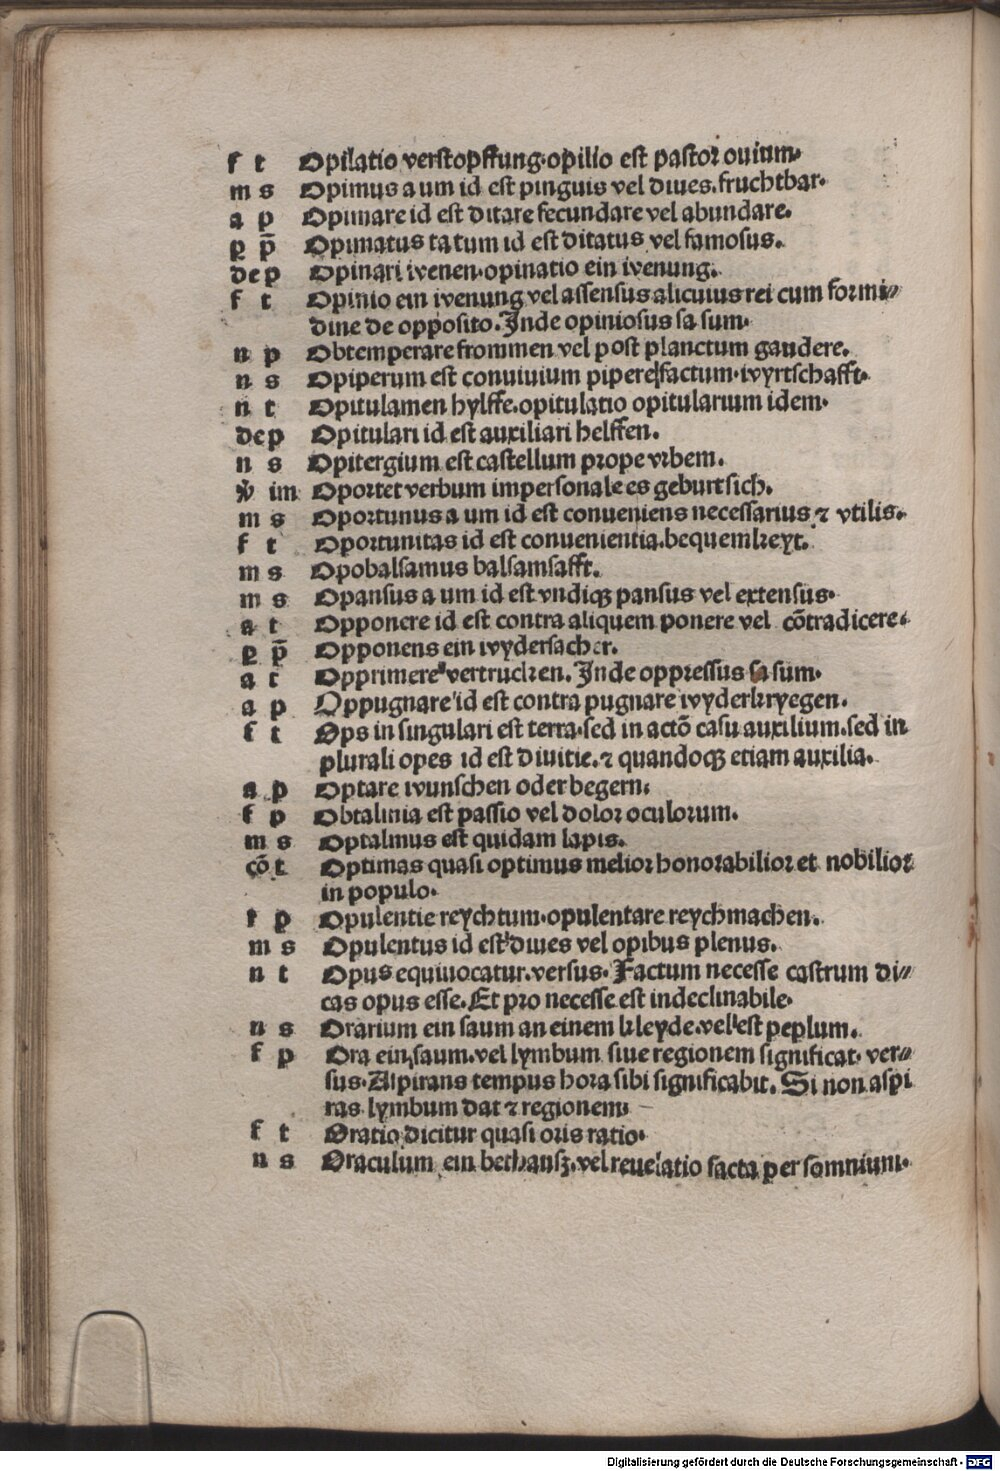 f t Opilatio verstopffung·opilio est pastor ouium·
m s Opimus a um id est pinguis vel diues.fruchtbar·
a p Opimare id est ditare fecundare vel abundare.
p p̄ Opimatus ta tum id est ditatus vel famosus.
dep Opinari wenen·opinatio ein wenung.
f t Opinio ein wenung vel assensus alicuius rei cum formi⸗
dine de opposito.Inde opiniosus sa sum·
n p Obtemperare frommen vel post planctum gaudere.
n s Opiperum est conuiuium pipere factum·wyrtschafft·
n t Opitulamen hylffe.opitulatio opitularium idem·
dep Opitulari id est auxiliari helffen.
n s Opitergium est castellum prope vrbem.
v̄ im Oportet verbum impersonale es geburt sich.
m s Oportunus a um id est conueniens necessarius ⁊ vtilis.
f t Oportunitas id est conuenientia.bequemkeyt.
m s Opobalsamus balsamsafft.
m s Opansus a um id est vndiqꝫ pansus vel extensus·
a t Opponere id est contra aliquem ponere vel cōtradicere·
p p̄ Opponens ein wydersacher.
a t Opprimere vertrucken.Inde oppressus sa sum·
a p Oppugnare id est contra pugnare wyderkryegen.
f t Ops in singulari est terra·sed in actō casu auxilium.sed in
plurali opes id est diuitie.⁊ quandoqꝫ etiam auxilia.
a p Optare wunschen oder begern.
f p Obtalmia est passio vel dolor oculorum.
m s Optalmus est quidam lapis.
cō t Optimas quasi optimus melior honorabilior et nobilior
in populo·
f p Opulentie reychtum·opulentare reychmachen.
m s Opulentus id est diues vel opibus plenus.
n t Opus equiuocatur.versus·Factum necesse castrum di⸗
cas opus esse.Et pro necesse est indeclinabile·
n s Orarium ein saum an einem kleyde.vel est peplum.
f p Ora ein saum.vel lymbum siue regionem significat·ver⸗
sus·Aspirans tempus hora sibi significabit.Si non aspi
ras lymbum dat ⁊ regionem·
f t Oratio dicitur quasi oris ratio·
n s Oraculum ein bethausz.vel reuelatio facta per somnium·
Digitalisierung gefördert durch die Deutsche Forschungsgemeinschaft - DFG